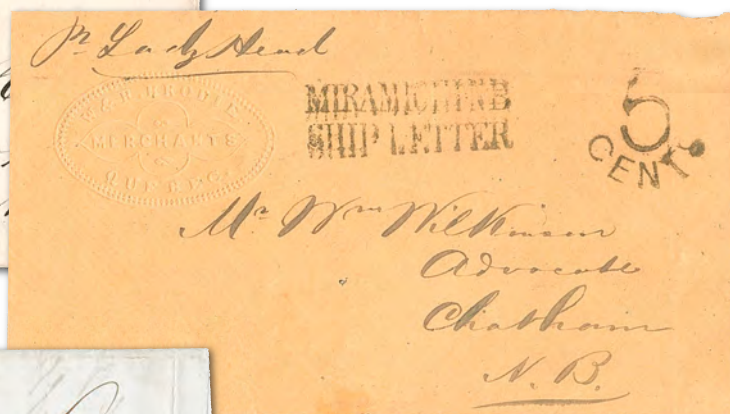 Pr Lady Head
MERCHANTS
QUEBEC
MIRAMICHI NB
SHIP LETTER
5
CENTS
Mr Wm Wilkinson
Advocate
Chatham
N. B.